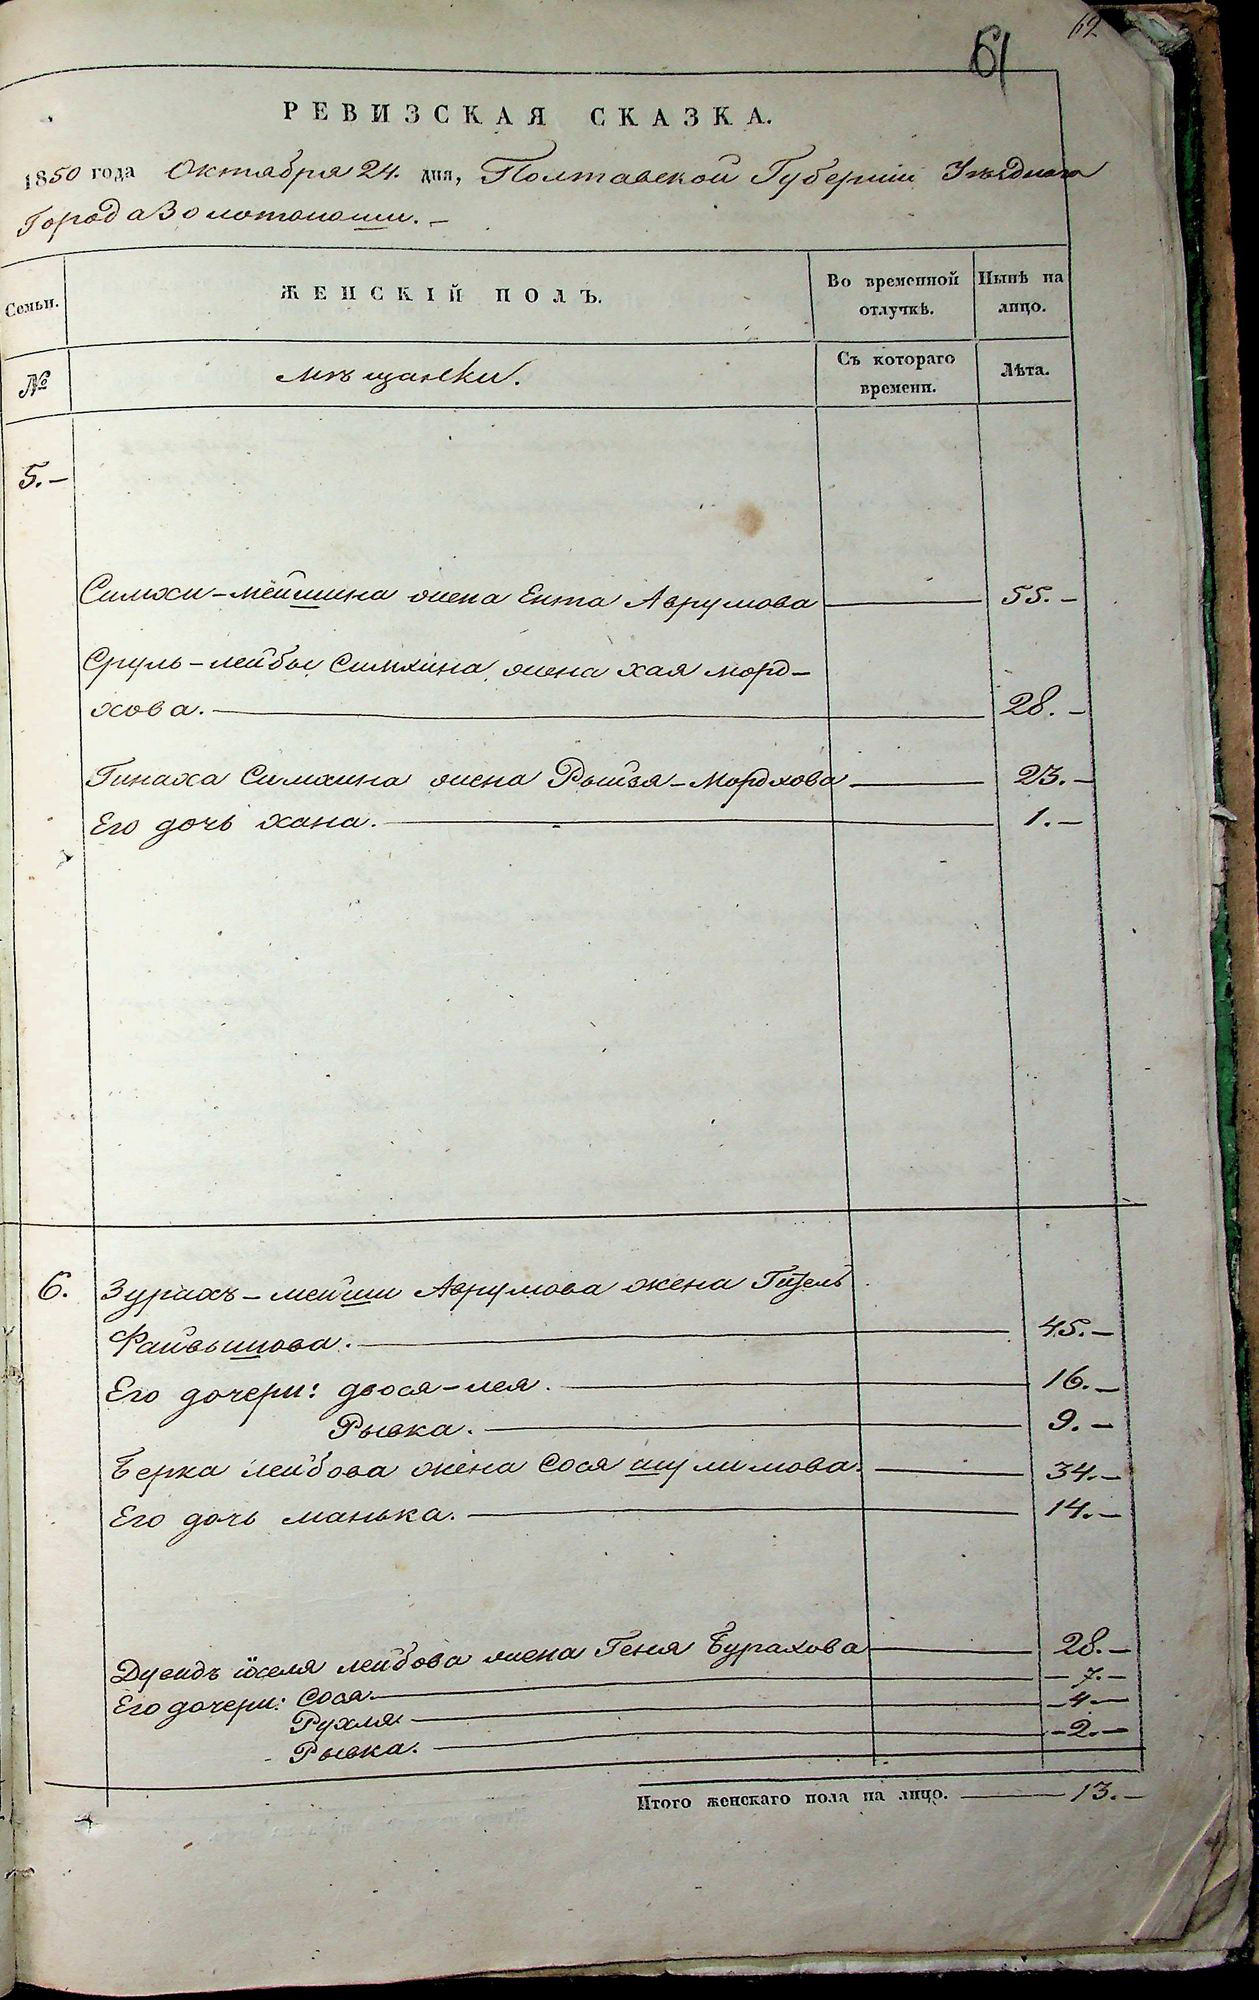 62
61
РЕВИЗСКАЯ СКАЗКА.
1850 года Октября 24. дня, Полтавской Губерніи Уѣзднаго
Города Золотоноши. –
Семьи.
ЖЕНСКІЙ ПОЛЪ.
Во временной отлучкѣ.
Нынѣ на лицо.
№
мѣщанки.
Съ котораго времени.
Лѣта.
5. –
Симхи-Мейшина жена Ента Аврумова 55. –
Сруль-лейбы Симхина жена хая морд-
хова. 28. –
Пинаха Симхина жена Рыйзя-Мордхова 23. –
Его дочь хана. 1. –
6. Зурахъ-мейши Аврумова жена Гитель
Файвышова. 45. –
Его дочери: двося-лея. 16. –
Рывка. 9. –
Берка лейбова жена Сося шулимова. 34. –
Его дочь манька. 14. –
Дувидъ іоселя лейбова жена Геня Бурахова 28. –
Его дочери: Сося. – 7. –
Рухля. – 4. –
Рывка. – 2. –
Итого женскаго пола на лицо. 13. –